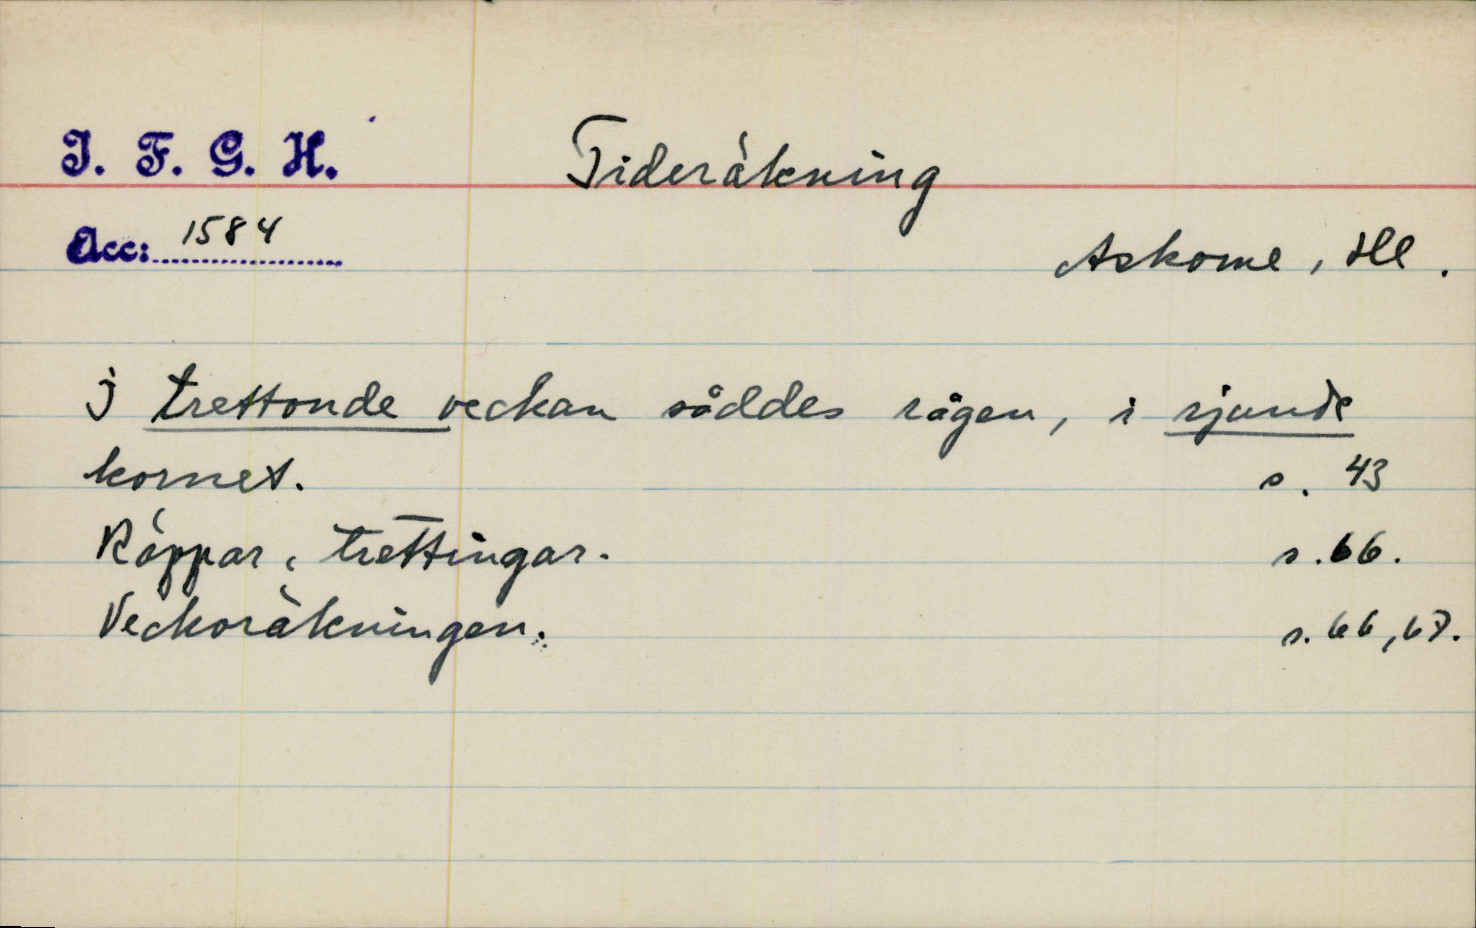 I. F. G. H.
Tideräkning
Acc: 1584
Askome, Hl.
I trettonde veckan såddes rågen, i sjunde
kornet. s. 43
Räppar, trettingar. s. 66.
Veckoräkningen. s. 66, 67.